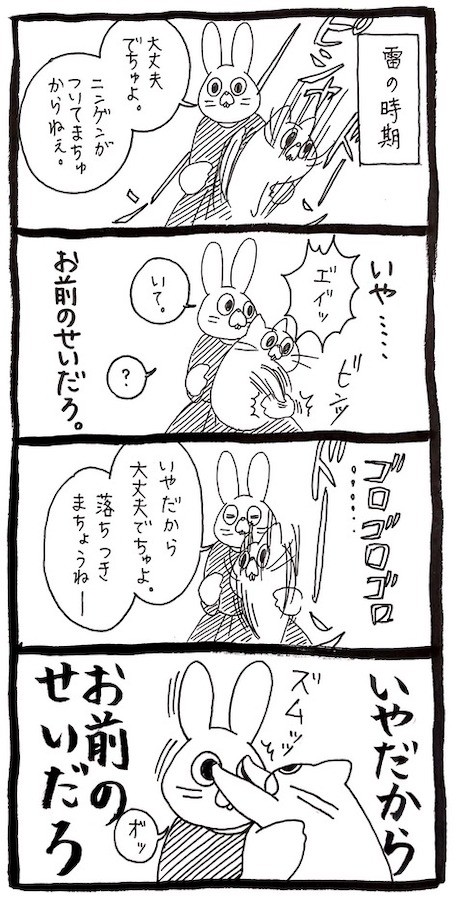 雷の時期
ピシャ
大丈夫
でちゅよ。
ニンゲンが
ついてまちゅ
からねぇ。
いや……
エイッ
ビンッ
いて。
？
お前のせいだろ。
ゴロゴロゴロ
……
いやだから
大丈夫でちゅよ。
落ちつき
まちょうねー
いやだから
ズムッ
ボッ
お前の
せいだろ